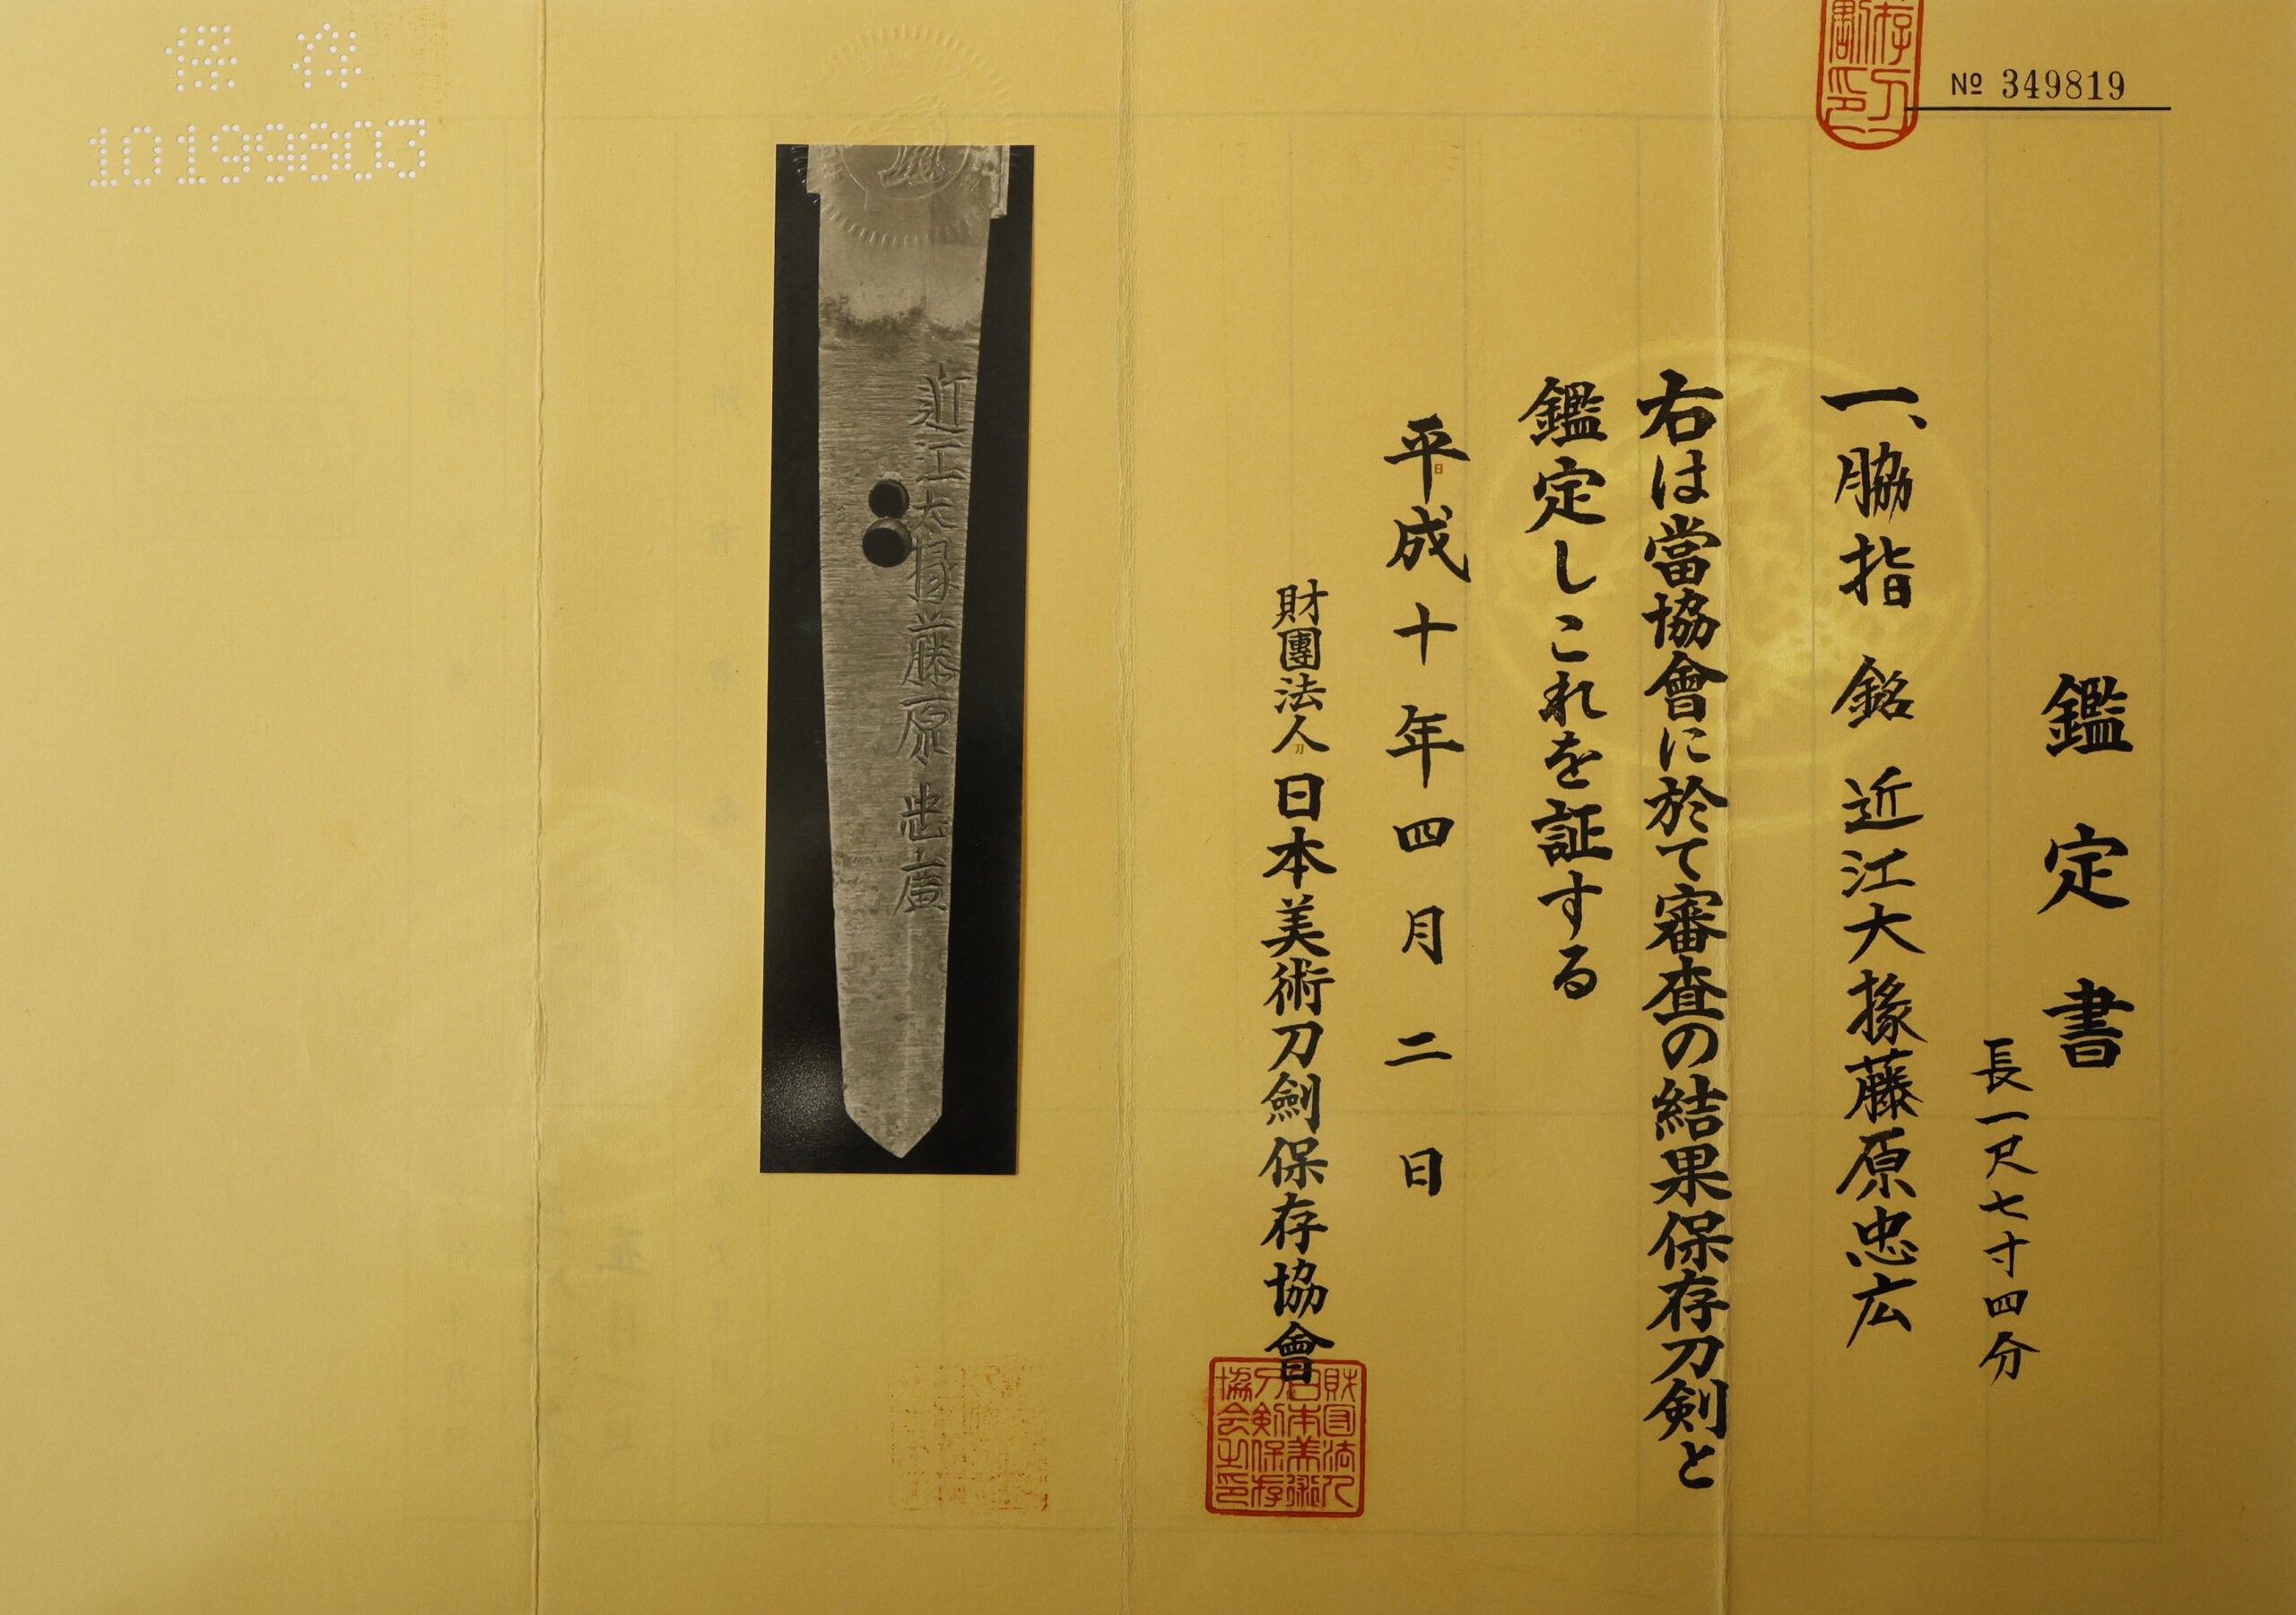 № 349819
鑑定書
長一尺七寸四分
一、脇指 銘 近江大掾藤原忠広
右は當協會に於て審査の結果保存刀剣と
鑑定しこれを証する
平成十年四月二日
財團法人日本美術刀劍保存協會
財団法人
日本美術
刀剣保存
協会之印
近江大掾藤原忠廣
保存